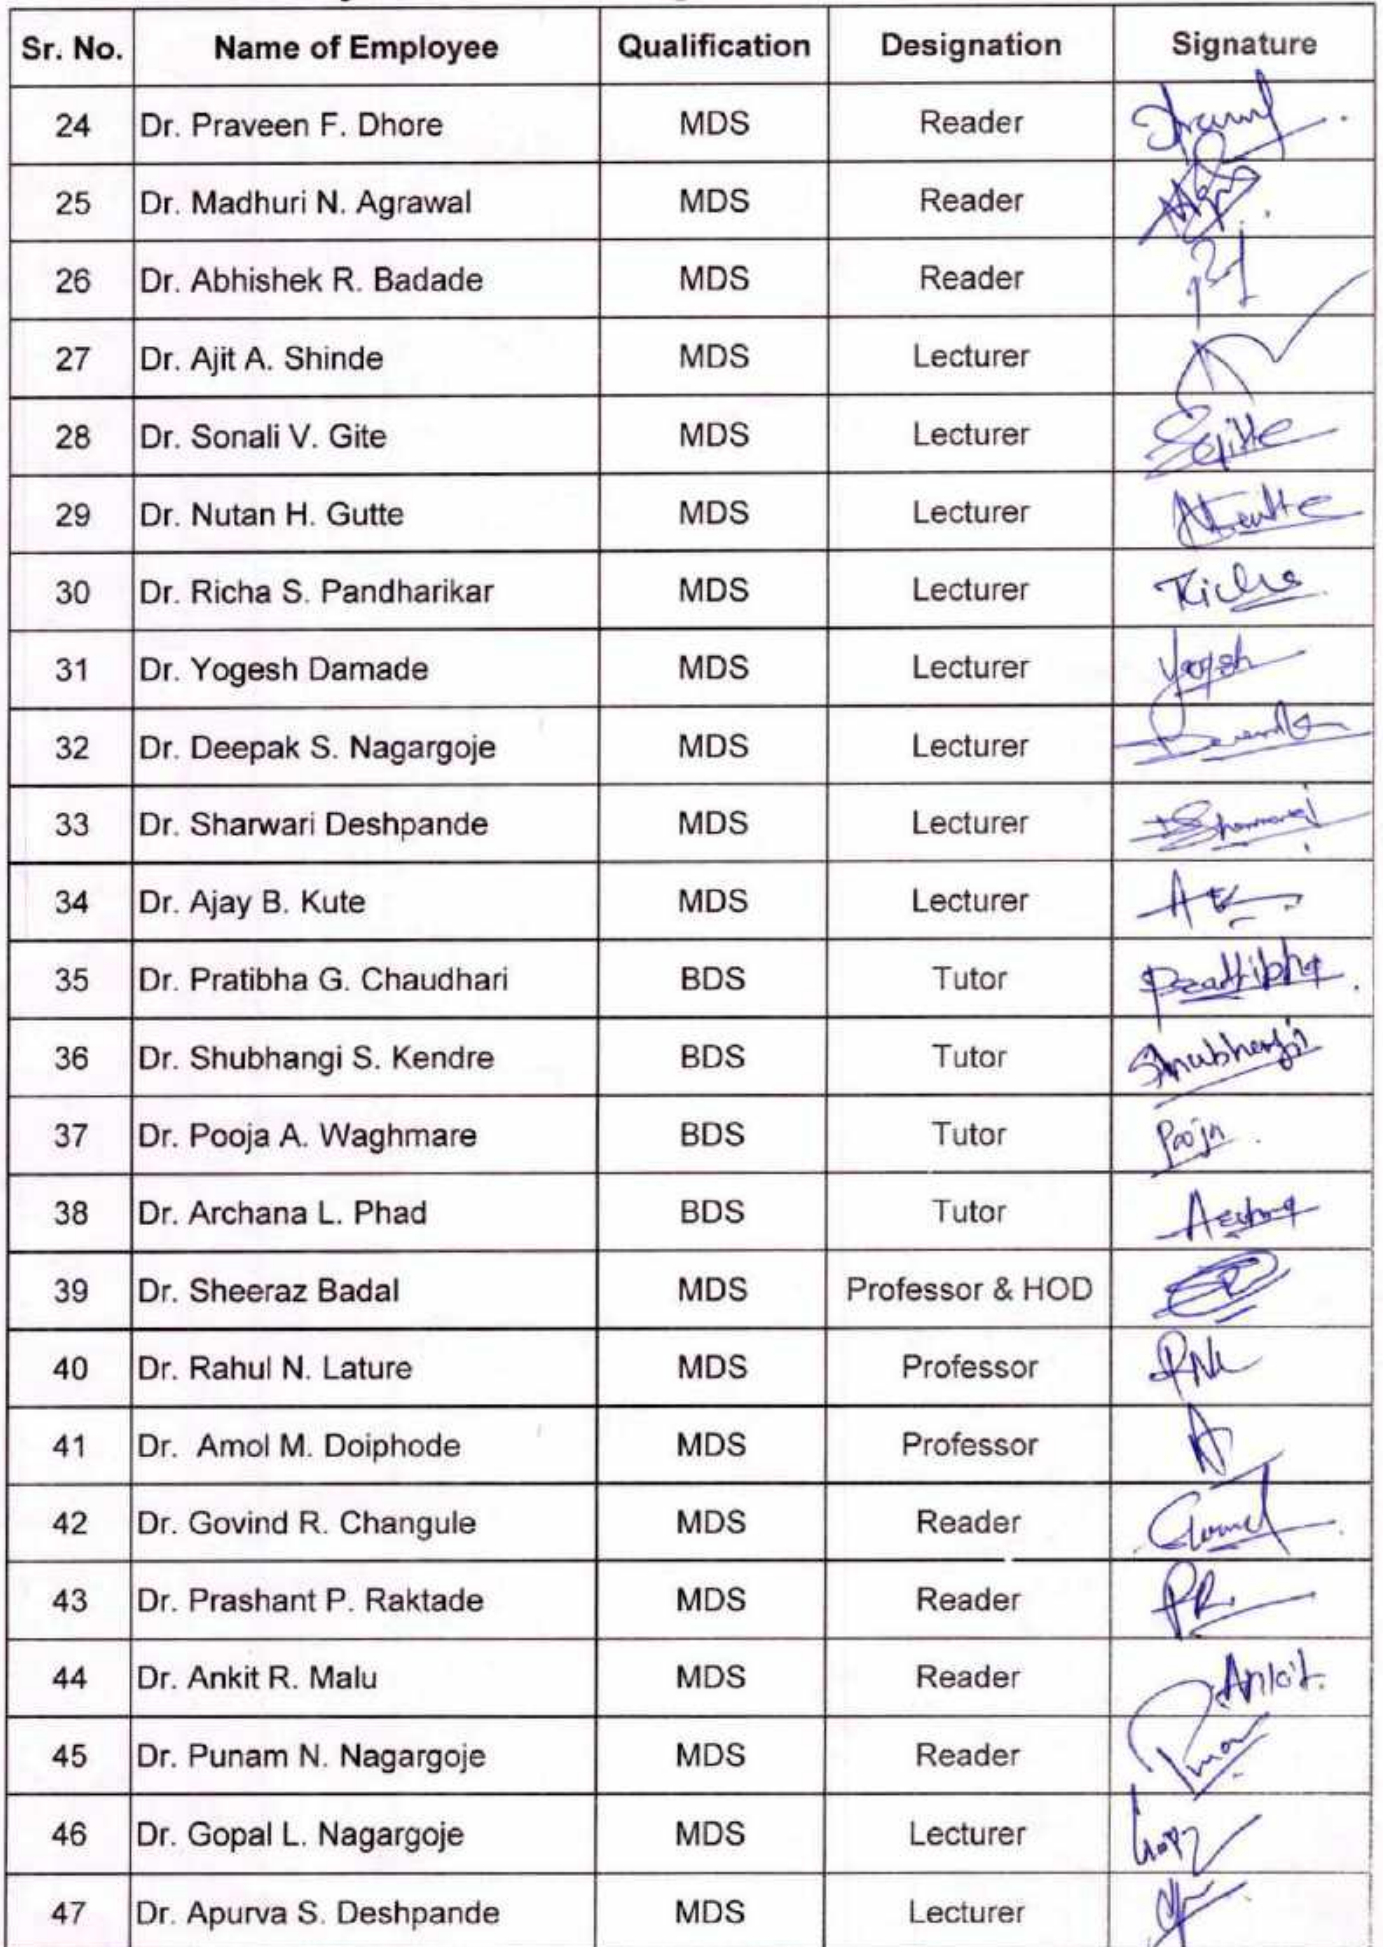 Sr. No. Name of Employee Qualification Designation Signature
24 Dr. Praveen F. Dhore MDS Reader
25 Dr. Madhuri N. Agrawal MDS Reader
26 Dr. Abhishek R. Badade MDS Reader
27 Dr. Ajit A. Shinde MDS Lecturer
28 Dr. Sonali V. Gite MDS Lecturer
29 Dr. Nutan H. Gutte MDS Lecturer
30 Dr. Richa S. Pandharikar MDS Lecturer Richa
31 Dr. Yogesh Damade MDS Lecturer Yogesh
32 Dr. Deepak S. Nagargoje MDS Lecturer
33 Dr. Sharwari Deshpande MDS Lecturer
34 Dr. Ajay B. Kute MDS Lecturer
35 Dr. Pratibha G. Chaudhari BDS Tutor
36 Dr. Shubhangi S. Kendre BDS Tutor Shubhangi
37 Dr. Pooja A. Waghmare BDS Tutor Pooja
38 Dr. Archana L. Phad BDS Tutor
39 Dr. Sheeraz Badal MDS Professor & HOD
40 Dr. Rahul N. Lature MDS Professor
41 Dr. Amol M. Doiphode MDS Professor
42 Dr. Govind R. Changule MDS Reader
43 Dr. Prashant P. Raktade MDS Reader PR
44 Dr. Ankit R. Malu MDS Reader Ankit
45 Dr. Punam N. Nagargoje MDS Reader
46 Dr. Gopal L. Nagargoje MDS Lecturer
47 Dr. Apurva S. Deshpande MDS Lecturer